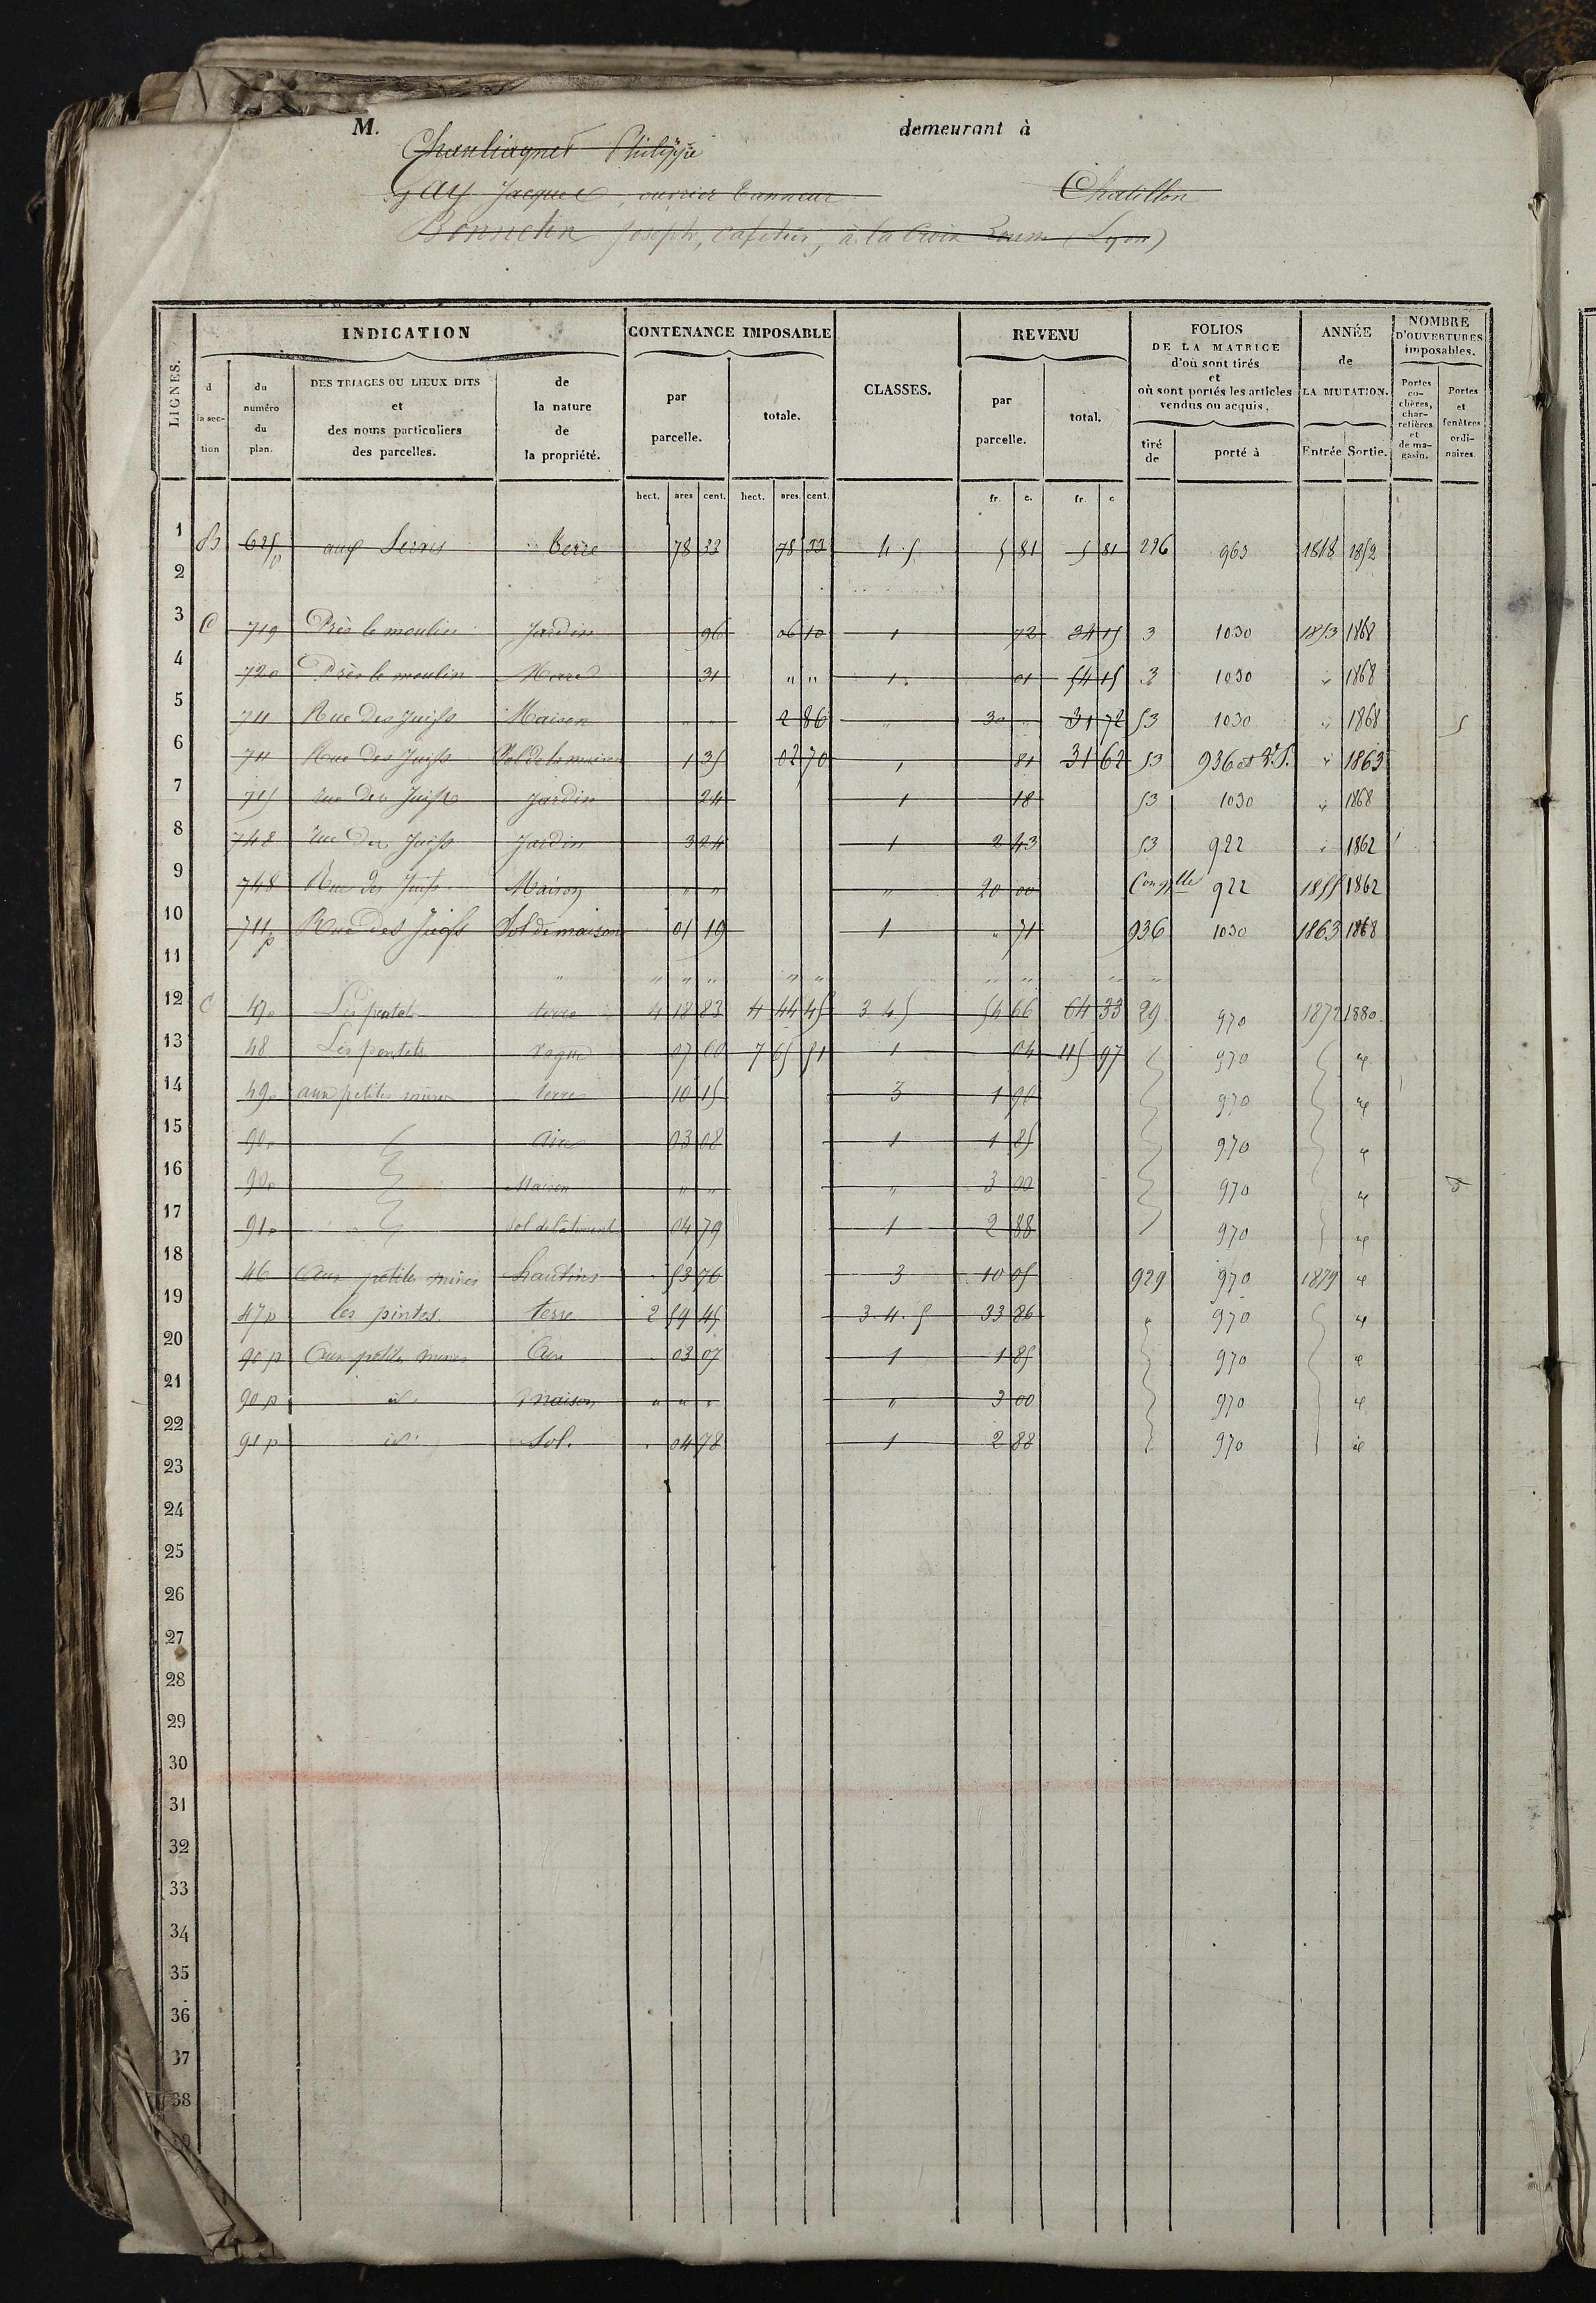 M. demeurant à
Philippe
Gay Jacques, ouvrier tanneur Chatillon
Bonnetin Joseph, cafetier, à la Croix Rousse (Lyon)
LIGNES. INDICATION CONTENANCE IMPOSABLE CLASSES. REVENU FOLIOS DE LA MATRICE d'où sont tirés et où sont portés les articles vendus ou acquis, ANNÉE de LA MUTATION. NOMBRE D'OUVERTURES imposables.
d la section du numéro du plan. DES TRIAGES OU LIEUX DITS et des noms particuliers des parcelles. de la nature de la propriété. par parcelle. totale. par parcelle. total. tiré de porté à Entrée Sortie. Portes cochères, charretières et de magasin. Portes et fenêtres ordinaires.
hect. ares cent. hect. ares cent. fr. c. fr. c
1 B 625p aux terre 78 33 78 33 4.5 5 81 5 81 226 963 1848 1852
2
3 C 719 Près le moulin Jardin 96 06 10 1 72 34 15 3 1030 1853 1868
4 720 Près le moulin 31 " " 1. 01 54 15 3 1030 " 1868
5 711 Rue des Juifs Maison " " 2 86 " 30 " 31 72 53 1030 " 1868 5
6 711 Rue des Juifs Sol de la maison 1 35 02 70 1 81 31 62 53 936 et 1863
7 715 rue des Juifs Jardin 24 1 18 53 1030 " 1868
8 748 rue des Juifs Jardin 3 24 1 2 43 53 922 " 1862
9 748 Rue des Juifs Maison " " " 20 00 922 1855 1862
10 711p Rue des Juifs Sol de maison 01 19 1 " 71 936 1030 1863 1868
11 " " " " " " " " " "
12 C 47p terre 4 18 83 4 44 45 3 4 5 54 66 64 33 29 970 1872 1880
13 48 07 60 7 65 51 1 04 115 97 970 "
14 49p aux petites mines terre 10 15 3 1 90 970 "
15 90p Aire 03 08 1 1 85 970 "
16 90p Maison " " " 3 00 970 "
17 91p sol de bâtiment 04 79 1 2 88 970 "
18 46 Aux petites mines hautins 53 76 3 10 05 929 970 1879 "
19 47p les pintes terre 2 59 45 3.4.5 33 86 " 970 "
20 90p Aux petites mines Aire 03 07 1 1 85 970 "
21 90p id. maison " " " " 3 00 970 "
22 91p id. Sol. 04 78 1 2 88 970 "
23
24
25
26
27
28
29
30
31
32
33
34
35
36
37
38